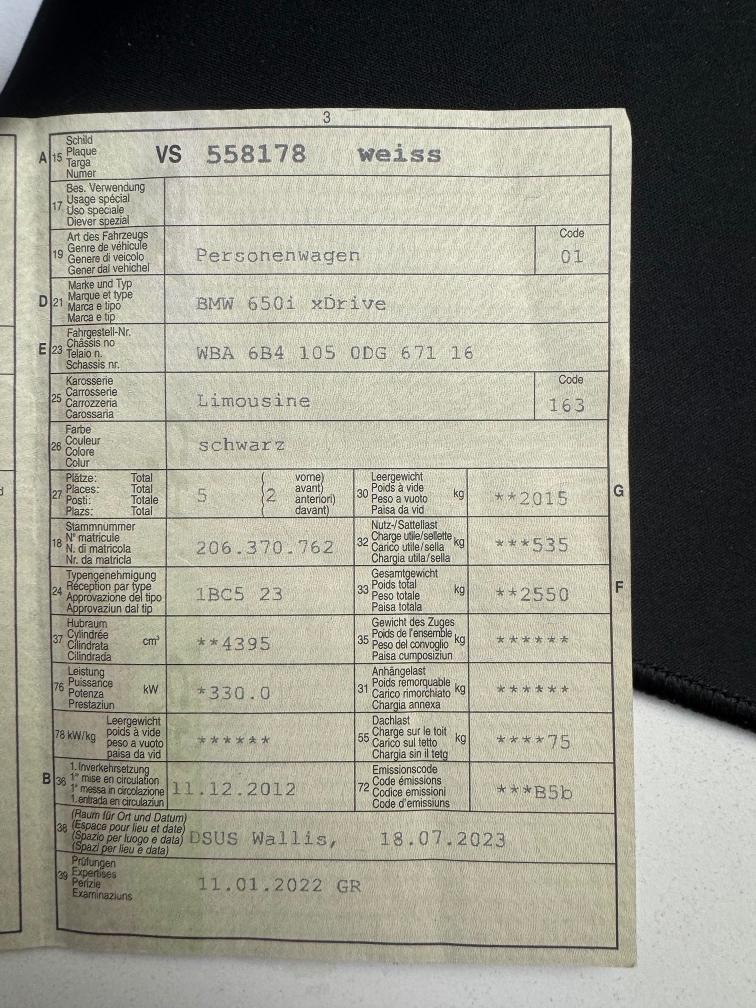 3
A 15 Schild
Plaque
Targa
Numer
VS 558178 weiss
17 Bes. Verwendung
Usage spécial
Uso speciale
Diever spezial
19 Art des Fahrzeugs
Genre de véhicule
Genere di veicolo
Gener dal vehichel
Personenwagen
Code
01
D 21 Marke und Typ
Marque et type
Marca e tipo
Marca e tip
BMW 650i xDrive
E 23 Fahrgestell-Nr.
Châssis no
Telaio n.
Schassis nr.
WBA 6B4 105 0DG 671 16
25 Karosserie
Carrosserie
Carrozzeria
Carossaria
Limousine
Code
163
26 Farbe
Couleur
Colore
Colur
schwarz
27 Plätze: Total
Places: Total
Posti: Totale
Plazs: Total
5 (2 vorne)
avant)
anteriori)
davant)
30 Leergewicht
Poids à vide
Peso a vuoto
Paisa da vid
kg
**2015
G
18 Stammnummer
N° matricule
N. di matricola
Nr. da matricla
206.370.762
32 Nutz-/Sattellast
Charge utile/sellette
Carico utile/sella
Chargia utila/sella
kg
***535
24 Typengenehmigung
Réception par type
Approvazione del tipo
Approvaziun dal tip
1BC5 23
33 Gesamtgewicht
Poids total
Peso totale
Paisa totala
kg
**2550
F
37 Hubraum
Cylindrée
Cilindrata
Cilindrada
cm³
**4395
35 Gewicht des Zuges
Poids de l'ensemble
Peso del convoglio
Paisa cumposiziun
kg
******
76 Leistung
Puissance
Potenza
Prestaziun
kW
*330.0
31 Anhängelast
Poids remorquable
Carico rimorchiato
Chargia annexa
kg
******
78 kW/kg Leergewicht
poids à vide
peso a vuoto
paisa da vid
******
55 Dachlast
Charge sur le toit
Carico sul tetto
Chargia sin il tetg
kg
****75
B 36 1. Inverkehrsetzung
1re mise en circulation
1a messa in circolazione
1. entrada en circulaziun
11.12.2012
72 Emissionscode
Code émissions
Codice emissioni
Code d'emissiuns
***B5b
38 (Raum für Ort und Datum)
(Espace pour lieu et date)
(Spazio per luogo e data)
(Spazi per lieu e data)
DSUS Wallis, 18.07.2023
39 Prüfungen
Expertises
Perizie
Examinaziuns
11.01.2022 GR